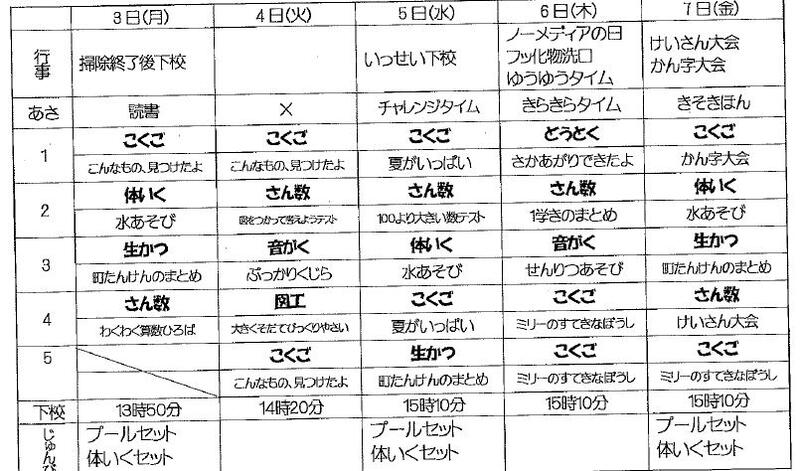 3日(月) 4日(火) 5日(水) 6日(木) 7日(金)
行事 掃除終了後下校 いっせい下校 ノーメディアの日 けいさん大会
フッ化物洗口 かん字大会
ゆうゆうタイム
あさ 読書 × チャレンジタイム きらきらタイム きそきほん
1 こくご こくご こくご どうとく こくご
こんなもの、見つけたよ こんなもの、見つけたよ 夏がいっぱい さかあがりできたよ かん字大会
2 体いく さん数 さん数 さん数 体いく
水あそび 図をつかって答えようテスト 100より大きい数テスト 1学きのまとめ 水あそび
3 生かつ 音がく 体いく 音がく 生かつ
町たんけんのまとめ ぷっかりくじら 水あそび せんりつあそび 町たんけんのまとめ
4 さん数 図工 こくご こくご さん数
わくわく算数ひろば 大きくそだてびっくりやさい 夏がいっぱい ミリーのすてきなぼうし けいさん大会
5 こくご 生かつ こくご こくご
こんなもの、見つけたよ 町たんけんのまとめ ミリーのすてきなぼうし ミリーのすてきなぼうし
下校 13時50分 14時20分 15時10分 15時10分 15時10分
じゅんび プールセット プールセット プールセット
体いくセット 体いくセット 体いくセット